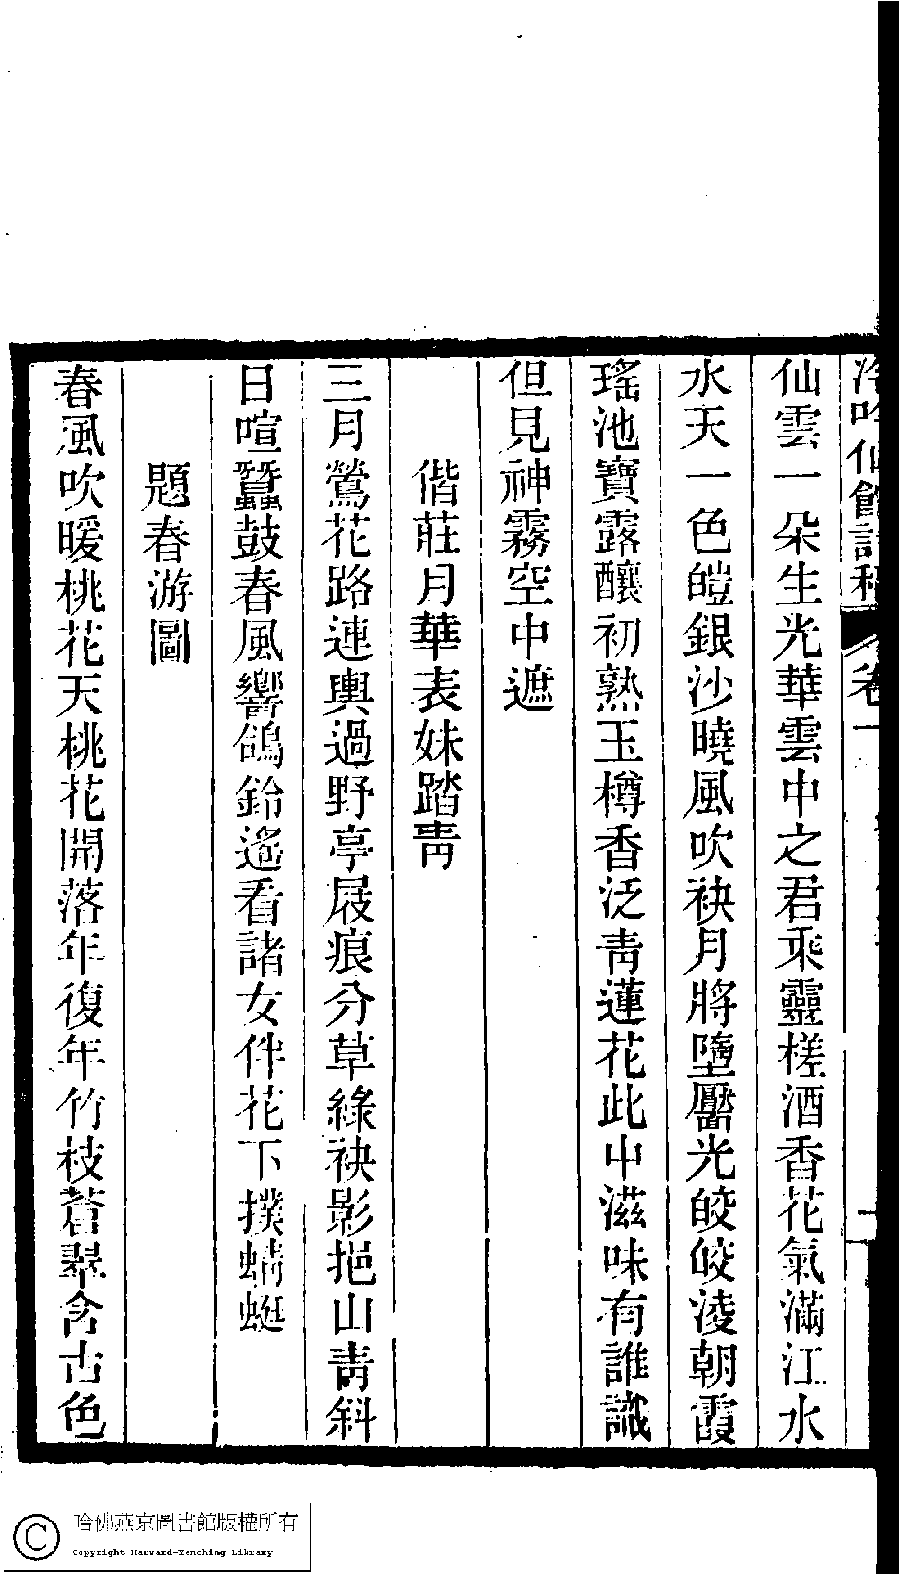 冷吟仙館詩稿 卷一
仙雲一朵生光華雲中之君乘靈槎酒香花氣滿江水
水天一色皚銀沙曉風吹袂月將墮靨光皎皎淩朝霞
瑤池寶露釀初熟玉樽香泛靑蓮花此中滋味有誰識
但見神霧空中遮
偕莊月華表妹踏靑
三月鶯花路連輿過野亭屐痕分草綠袂影挹山靑斜
日喧蠶鼓春風響鴿鈴遙看諸女伴花下撲蜻蜓
題春游圖
春風吹暖桃花天桃花開落年復年竹枝蒼翠含古色
哈佛燕京圖書館版權所有
Copyright Harvard-Yenching Library